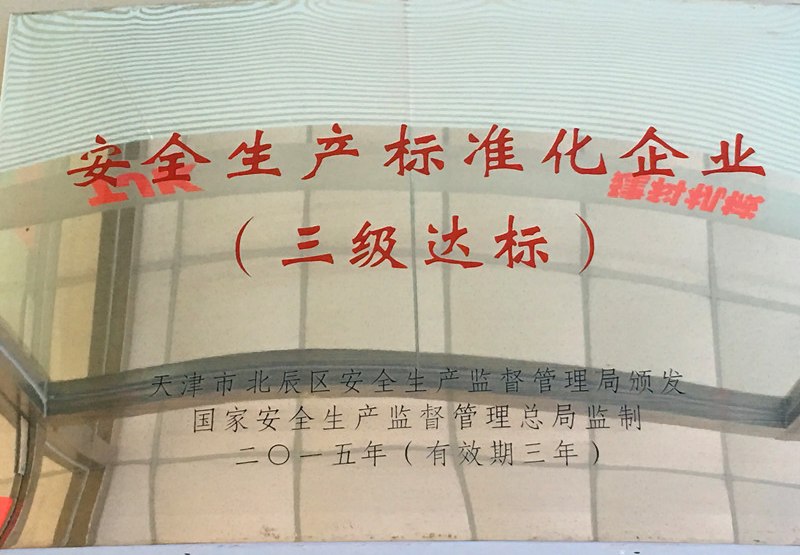 安全生产标准化企业
（三级达标）
天津市北辰区安全生产监督管理局颁发
国家安全生产监督管理总局监制
二〇一五年（有效期三年）